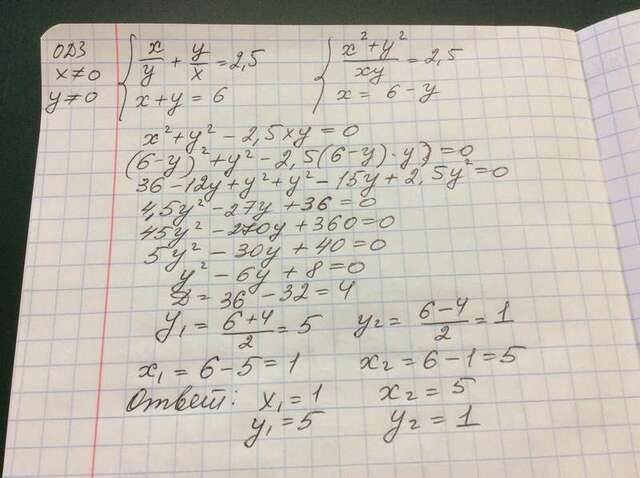 ОДЗ
x≠0
y≠0
{ x/y + y/x = 2,5
x+y = 6
{ (x²+y²)/xy = 2,5
x = 6-y
x²+y² - 2,5xy = 0
(6-y)²+y² - 2,5(6-y)·y) = 0
36-12y+y²+y²-15y+2,5y²=0
4,5y² - 27y + 36 = 0
45y² - 270y + 360 = 0
5y² - 30y + 40 = 0
y² - 6y + 8 = 0
D = 36 - 32 = 4
y₁ = (6+4)/2 = 5 y₂ = (6-4)/2 = 1
x₁ = 6-5 = 1 x₂ = 6-1 = 5
Ответ: x₁ = 1 x₂ = 5
y₁ = 5 y₂ = 1